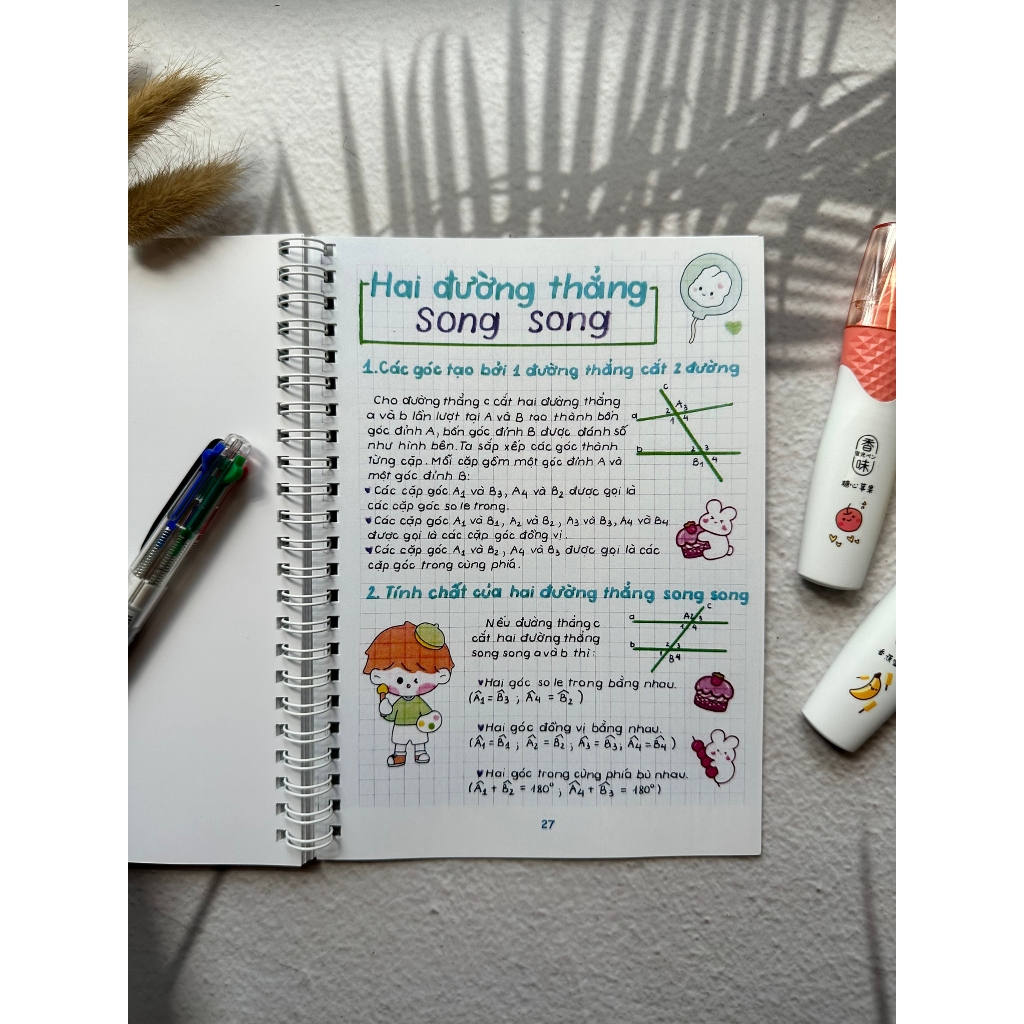 Hai đường thẳng
song song
1. Các góc tạo bởi 1 đường thẳng cắt 2 đường
Cho đường thẳng c cắt hai đường thẳng
a và b lần lượt tại A và B tạo thành bốn
góc đỉnh A, bốn góc đỉnh B được đánh số
như hình bên. Ta sắp xếp các góc thành
từng cặp. Mỗi cặp gồm một góc đỉnh A và
một góc đỉnh B:
c
a
2 A 3
1 4
b
2 3
B 1 4
♥ Các cặp góc A₁ và B₃, A₄ và B₂ được gọi là
các cặp góc so le trong.
♥ Các cặp góc A₁ và B₁, A₂ và B₂, A₃ và B₃, A₄ và B₄
được gọi là các cặp góc đồng vị.
♥ Các cặp góc A₁ và B₂, A₄ và B₃ được gọi là các
cặp góc trong cùng phía.
2. Tính chất của hai đường thẳng song song
Nếu đường thẳng c
cắt hai đường thẳng
song song a và b thì:
c
a
A 2 3
1 4
b
2 3
1 B 4
♥ Hai góc so le trong bằng nhau.
(Â₁ = B̂₃ ; Â₄ = B̂₂)
♥ Hai góc đồng vị bằng nhau.
(Â₁ = B̂₁ ; Â₂ = B̂₂ ; Â₃ = B̂₃ ; Â₄ = B̂₄)
♥ Hai góc trong cùng phía bù nhau.
(Â₁ + B̂₂ = 180° ; Â₄ + B̂₃ = 180°)
27
香
味
糖心苹果